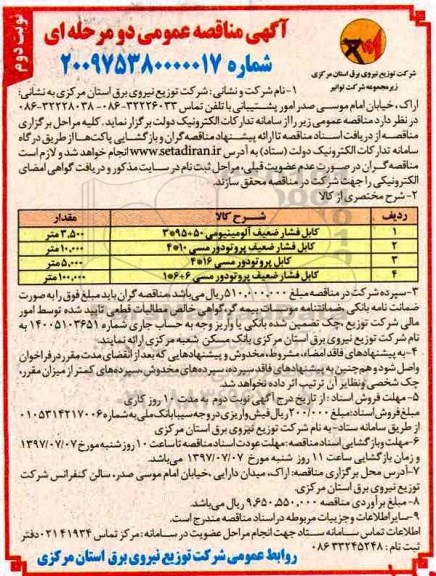 نوبت دوم
آگهی مناقصه عمومی دو مرحله ای
شماره ۲۰۰۹۷۵۳۸۰۰۰۰۰۱۷
شرکت توزیع نیروی برق استان مرکزی
زیرمجموعه شرکت توانیر
۱-نام شرکت و نشانی : شرکت توزیع نیروی برق استان مرکزی به نشانی:
اراک، خیابان امام موسی صدر امور پشتیبانی با تلفن تماس ۳۲۲۲۶۰۳۳-۰۸۶ ۳۲۲۲۸۰۳۸-۰۸۶
در نظر دارد مناقصه عمومی زیر را از سامانه تدارکات الکترونیک دولت برگزار نماید. کلیه مراحل برگزاری
مناقصه از دریافت اسناد مناقصه تا ارائه پیشنهاد مناقصه گران و بازگشایی پاکت‌ها از طریق درگاه
سامانه تدارکات الکترونیک دولت (ستاد) به آدرس www.setadiran.ir انجام خواهد شد و لازم است
مناقصه گران در صورت عدم عضویت قبلی، مراحل ثبت نام در سایت مذکور و دریافت گواهی امضای
الکترونیکی را جهت شرکت در مناقصه محقق سازند.
۲-شرح مختصری از کالا
ردیف شرح کالا مقدار
۱ کابل فشار ضعیف آلومینیومی ۵۰+۹۵*۳ ۳,۵۰۰ متر
۲ کابل فشار ضعیف پروتودور مسی ۱۰*۴ ۱۰,۰۰۰ متر
۳ کابل پروتودور مسی ۱۶*۴ ۵,۰۰۰ متر
۴ کابل فشار ضعیف پروتودور مسی ۶+۶*۱ ۱۰۰,۰۰۰ متر
۳-سپرده شرکت در مناقصه مبلغ ۵۱۰,۰۰۰,۰۰۰ ریال می‌باشد، مناقصه گران باید مبلغ فوق را به صورت
ضمانت نامه بانکی، ضمانتنامه موسسات بیمه گر، گواهی خالص مطالبات قطعی تایید شده توسط امور
مالی شرکت توزیع، چک تضمین شده بانکی یا واریز وجه به حساب جاری شماره ۱۴۰۰۵۱۰۳۶۵۱ به
نام شرکت توزیع نیروی برق استان مرکزی بانک مسکن شعبه مرکزی ارائه نمایند.
۴-به پیشنهادهای فاقد امضاء، مشروط، مخدوش و پیشنهادهایی که بعد از انقضای مدت مقرر در فراخوان
واصل شود و هم‌چنین به پیشنهادهای فاقد سپرده، سپرده‌های مخدوش، سپرده‌های کمتر از میزان مقرر،
چک شخصی و نظایر آن ترتیب اثر داده نخواهد شد.
۵- مهلت فروش اسناد : از تاریخ درج آگهی نوبت دوم به مدت ۱۰ روز کاری
مبلغ فروش اسناد: مبلغ ۲۰۰/۰۰۰ ریال فیش واریزی در وجه سیبا بانک ملی به شماره ۰۱۰۵۳۱۴۲۱۷۰۰۶
از طریق سامانه ستاد- به نام شرکت توزیع نیروی برق استان مرکزی
۶-مهلت و بازگشایی اسناد مناقصه: مهلت عودت اسناد مناقصه تا ساعت ۱۰ روز شنبه مورخ ۱۳۹۷/۰۷/۰۷
و زمان بازگشایی ساعت ۱۱ روز شنبه مورخ ۱۳۹۷/۰۷/۰۷ می‌باشد.
۷-آدرس محل برگزاری مناقصه: اراک، میدان دارایی، خیابان امام موسی صدر، سالن کنفرانس شرکت
توزیع نیروی برق استان مرکزی.
۸- مبلغ برآوردی مناقصه ۹,۶۵۰,۵۵۰,۰۰۰ ریال می‌باشد.
۹-سایر اطلاعات و جزییات مربوطه در اسناد مناقصه مندرج است.
اطلاعات تماس سامانه ستاد جهت انجام مراحل عضویت در سامانه: مرکز تماس ۴۱۹۳۴ ۰۲۱ دفتر
ثبت نام : ۳۳۲۴۵۲۴۸ ۰۸۶
روابط عمومی شرکت توزیع نیروی برق استان مرکزی